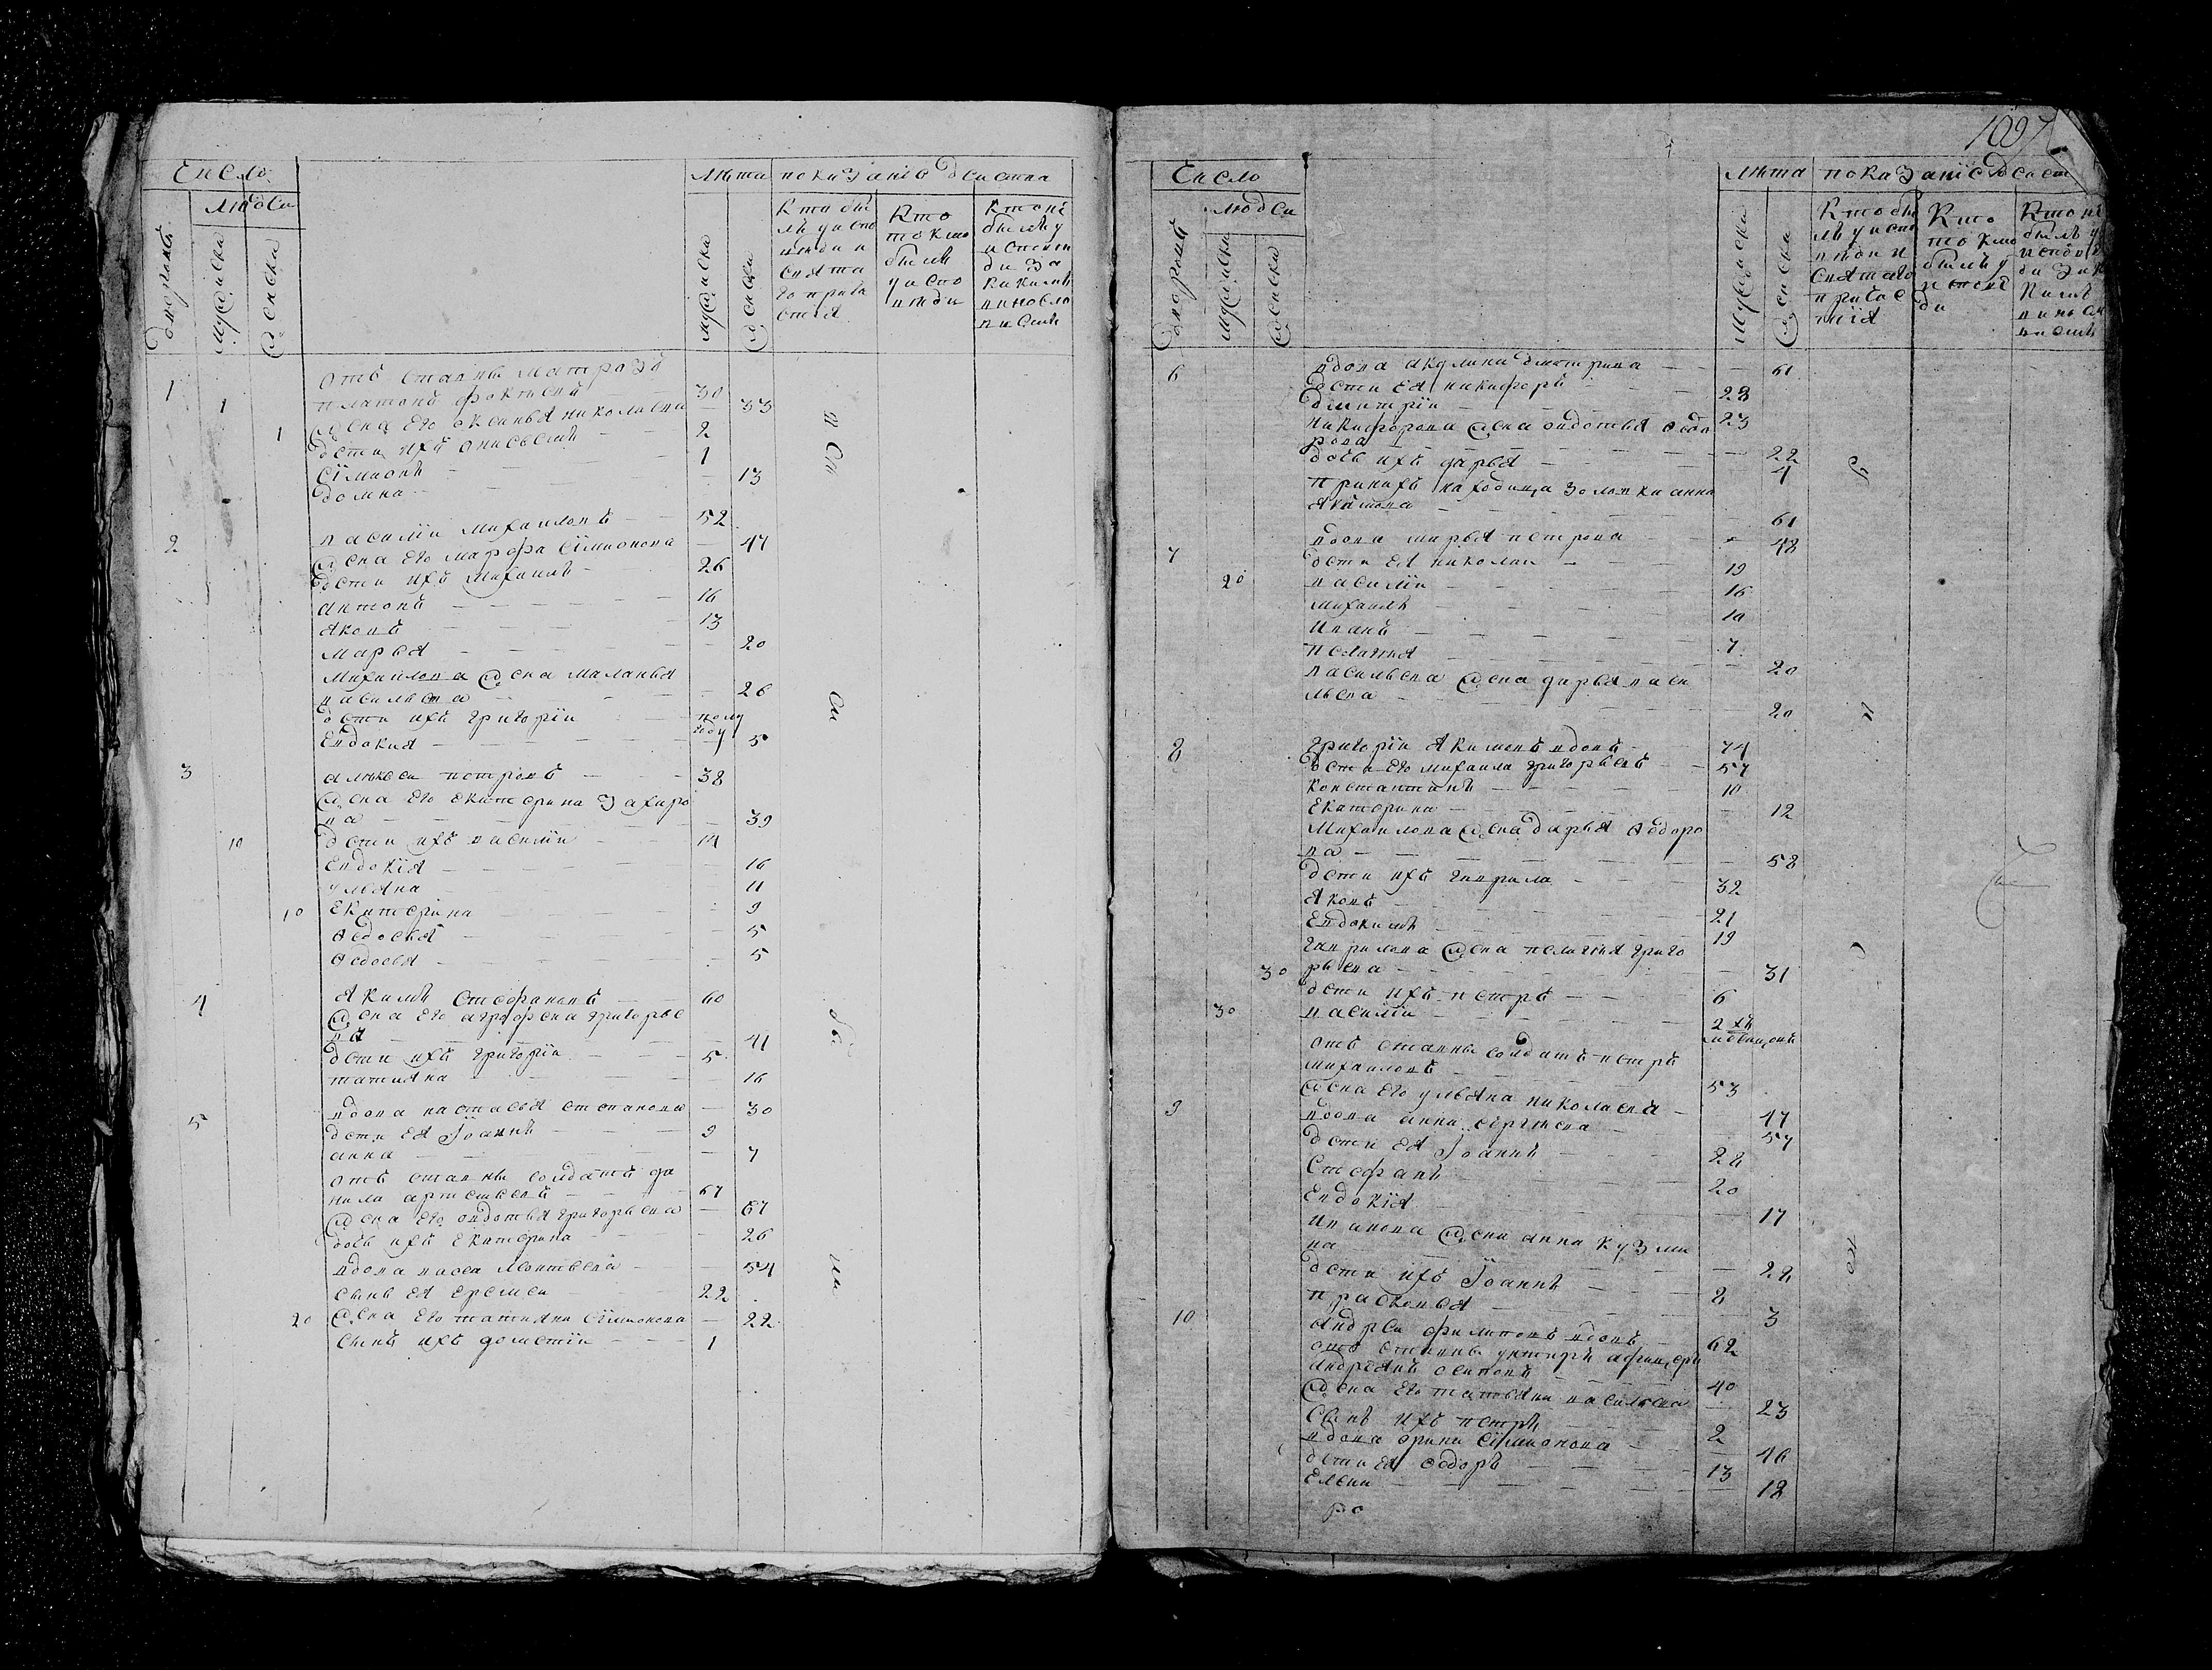 Число
Люди
дворовъ
мужеска
женска
Лѣта
показаніе действа
мужеска
женска
Кто бы
лъ у испо
вѣди и
свята
го прича
стія
Кто
токмо
былъ
у испо
вѣди
Кто не
былъ у
исповѣ
ди за
какимъ
виносло
виемъ
отъ ставны матрозъ
1 1 платонъ фоктиевъ 30
1 жена его оксинья николаевна 33
дети ихъ онисьемъ 2
Сїмионъ 1
домна 13
2 василїи михаиловъ 52
жена его марфа Сїмионова 47
дети ихъ михаилъ 26
антонъ 16
яковъ 13
марья 20
михаилова жена маланья
васильевна 26
дети ихъ григорїи полу
году
Евдокия 5
3 алексеи петровъ 38
жена его екатерина захаро
ва 39
10 дети ихъ василїи 14
Евдокїя 16
ульяна 11
10 Екатерина 9
Ѳедосья 5
Ѳедосья 5
4 Якимъ Стефановъ 60
жена его агрофена григорье
вна 41
дети ихъ григорїи 5
татияна 16
5 вдова настасья степанова 30
дети ея Іоаннъ 9
анна 7
отъ ставны солдатъ да
нила артемьевъ 67
жена его овдотья григорьевна 67
дочь ихъ екатерина 26
вдова васса леонтьева 54
сынъ ея еремеи 22
20 жена его татияна Сїмионова 22
сынъ ихъ дометїи 1
Испо веди ны
1097
Число
людеи
дворовъ
мужеска
женска
Лѣта
показанїе деист
мужеска
женска
Кто бы
лъ у испо
вѣди и
святаго
причас
тїя
Кто
токмо
былъ у
исповѣ
ди
Кто не
былъ у
исповѣ
ди за ка
кимъ
виносло
виемъ
6 вдова акулина дмитриева 61
дети ея никифоръ 28
дмитрїи 23
никифорова жена овдотья Ѳедо
рова 22
дочь ихъ дарья 4
при нихъ находица золовка анна
якимова 61
7 вдова марья петрова 48
дети ея николаи 19
20 василїи 16
михаилъ 10
иванъ 7
пелагия 20
васильева жена дарья васи
льевна 20
8 григорїи якимовъ вдовъ 74
дети его михаила григорьевъ 57
константинъ 10
Екатерина 12
михаилова жена дарья Ѳедоро
ва 58
дети ихъ гаврила 32
яковъ 21
Евдокимъ 19
гаврилова жена пелагия григо
30 рьевна 31
дети ихъ петръ 6
30 василїи 2 хъ
отъ ставны солдатъ петръ
михаиловъ 53
жена его ульяна николаевна 47
9 вдова анна сергиева 57
дети ея Іоаннъ 28
Стефанъ 20
Евдокїя 17
иванова жена анна кузми
на 22
дети ихъ Іоаннъ 8
прасковья 3
10 андреи филиповъ вдовъ 62
отъ ставны унтиръ афицеръ
андреянъ осиповъ 40
жена его татьяна васильева 23
сынъ ихъ петръ 2
вдова орина Сїмионова 46
дети ея Ѳедоръ 13
Елена 18